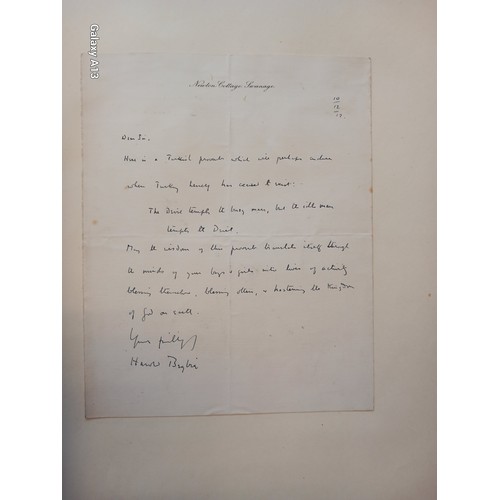 Galaxy A13
Newton Cottage Swanage
Dear Sir,
Here is a Turkish proverb which will perhaps
when Turkey herself has ceased to exist:
The Devil tempts the busy man, but the idle man
tempts the Devil.
May the wisdom of this proverb translate itself through
the minds of your boys & girls into lives of activity
blessing themselves, blessing others, & hastening the Kingdom
of God on earth.
Yours faithfully
Harold Begbie